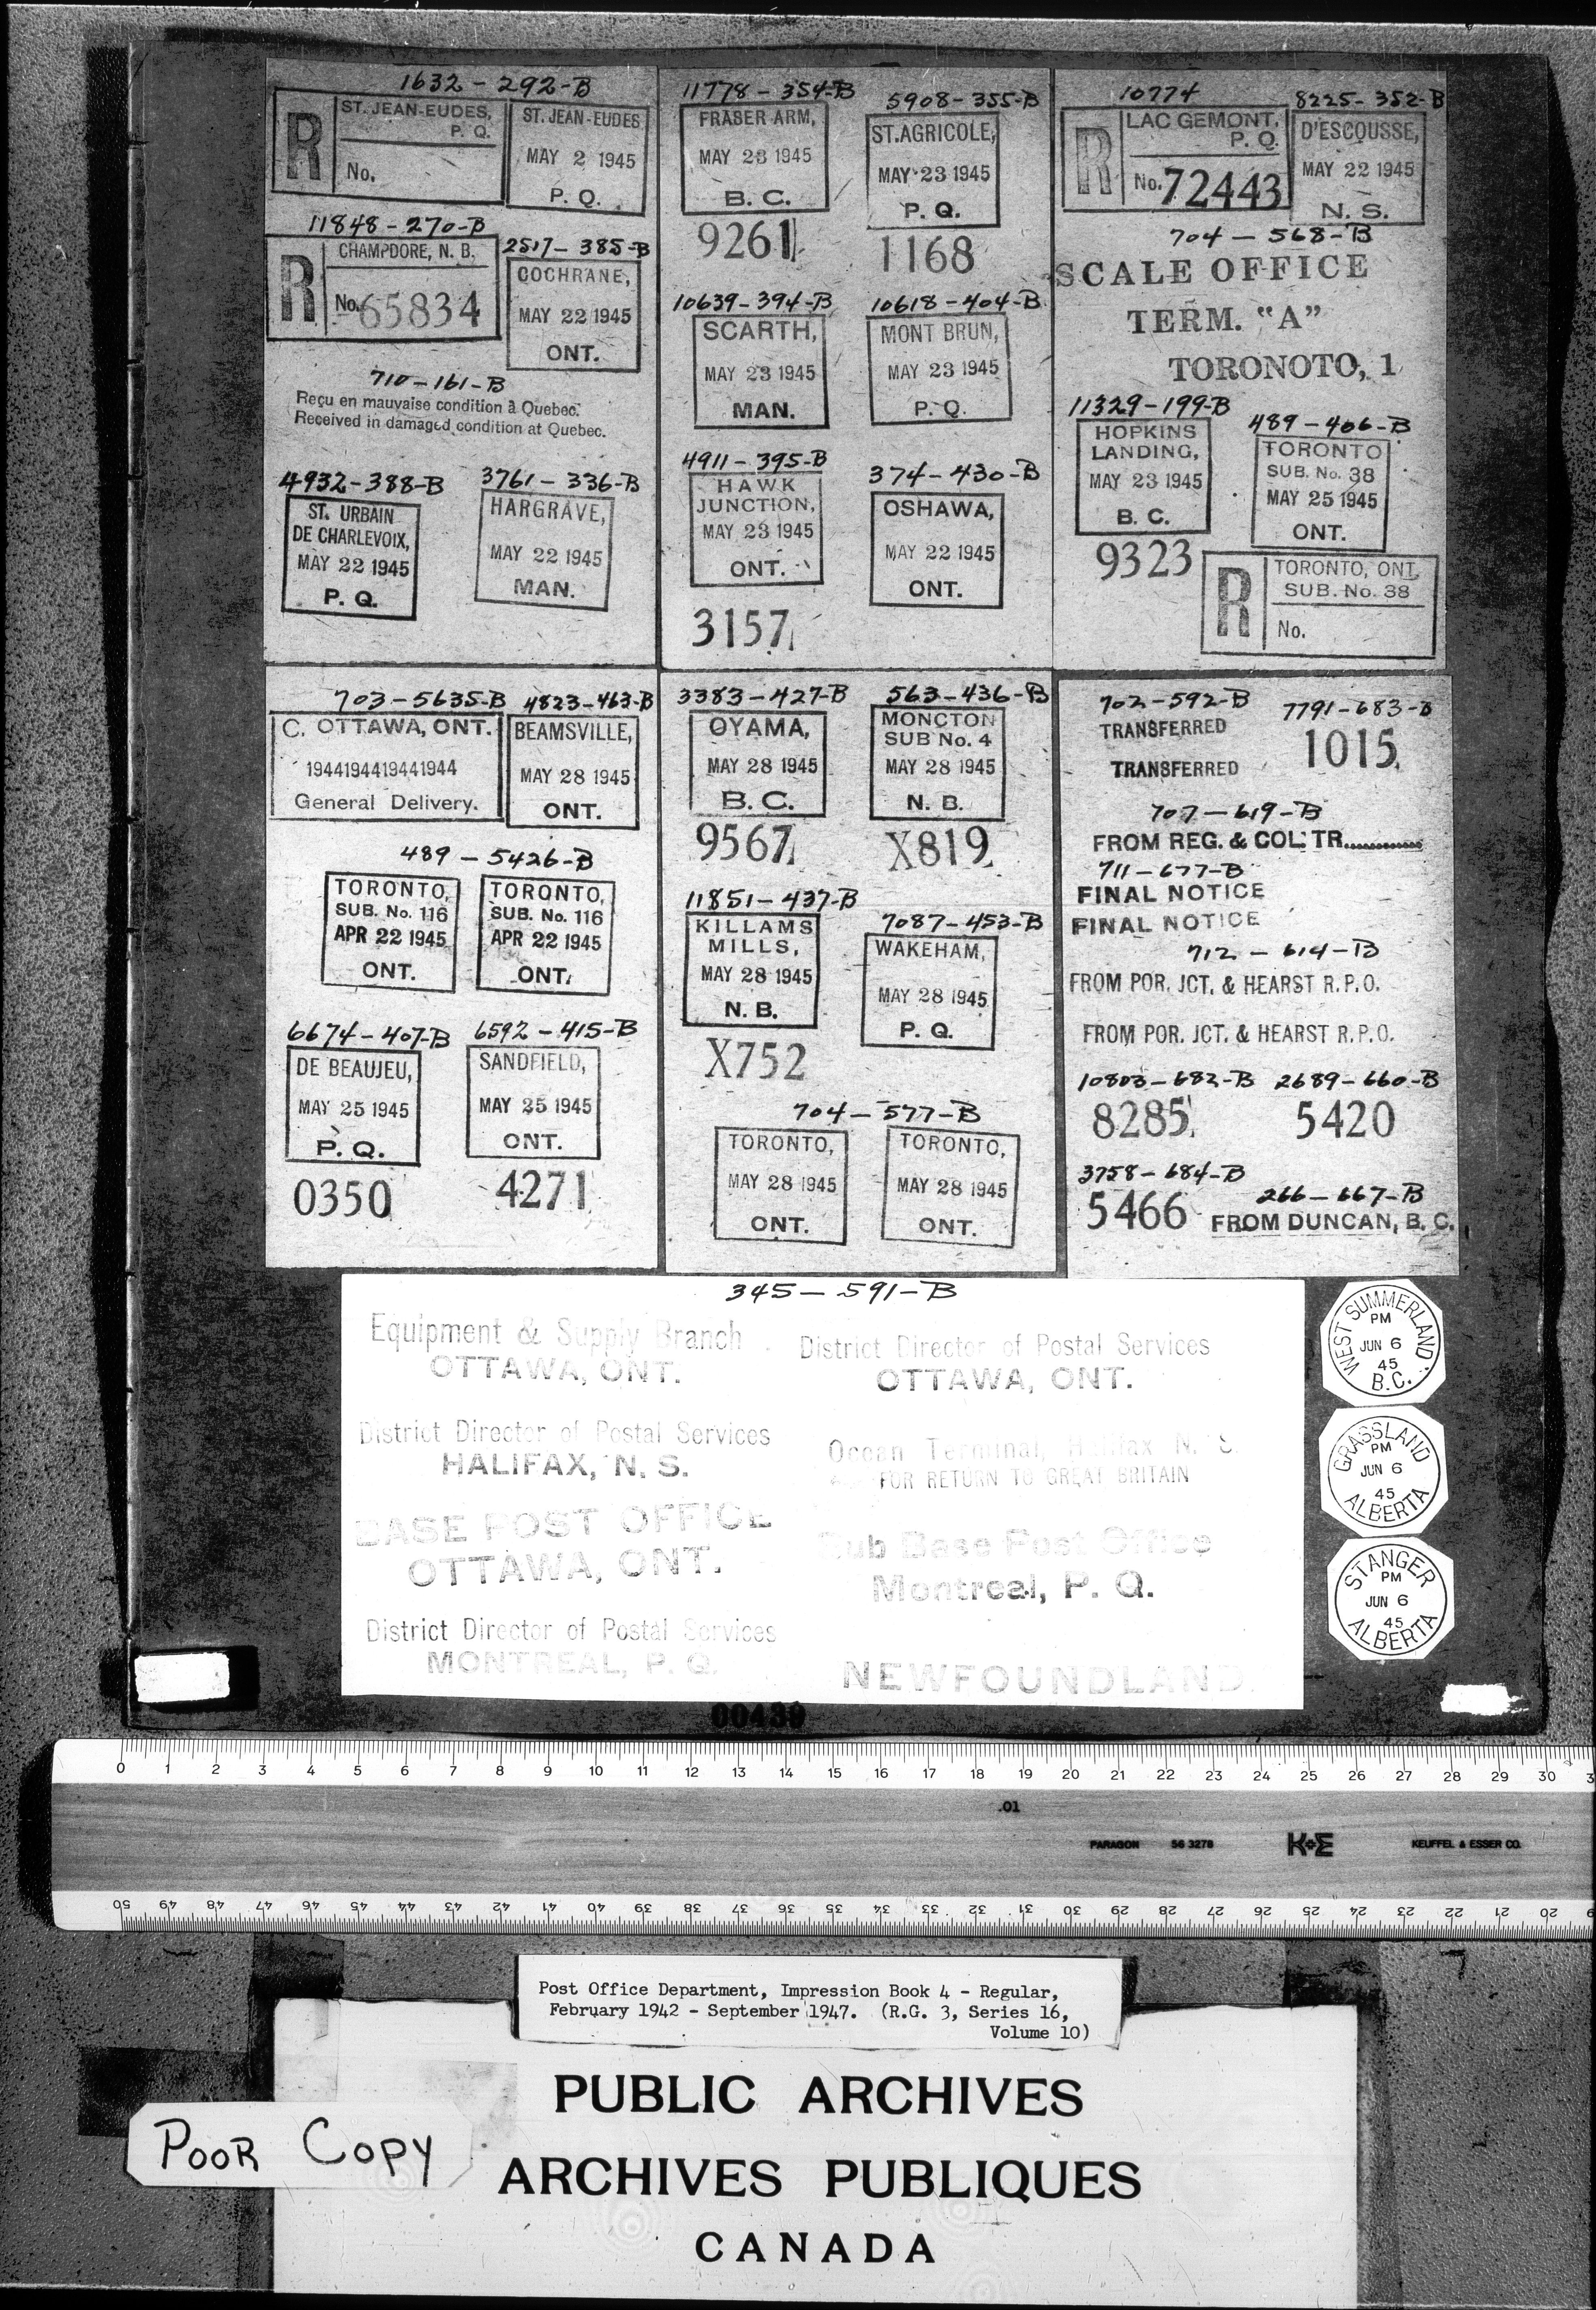 1632 - 292-B
R
ST. JEAN-EUDES,
P. Q.
No.
ST. JEAN-EUDES
MAY 2 1945
P. Q.
11848 - 270-B
R
CHAMPDORE, N. B.
No. 65834
2517 - 385-B
COCHRANE,
MAY 22 1945
ONT.
710-161-B
Reçu en mauvaise condition à Quebec.
Received in damaged condition at Quebec.
4932-388-B
ST. URBAIN
DE CHARLEVOIX,
MAY 22 1945
P. Q.
3761 - 336-B
HARGRAVE,
MAY 22 1945
MAN.
11778 - 354-B
FRASER ARM,
MAY 23 1945
B. C.
9261
5908-355-B
ST. AGRICOLE,
MAY 23 1945
P. Q.
1168
10639-394-B
SCARTH,
MAY 23 1945
MAN.
10618-404-B
MONT BRUN,
MAY 23 1945
P. Q.
4911-395-B
HAWK
JUNCTION,
MAY 23 1945
ONT.
3157
374-430-B
OSHAWA,
MAY 22 1945
ONT.
10774
R
LAC GEMONT,
P. Q.
No. 72443
8225-352-B
D'ESCOUSSE,
MAY 22 1945
N. S.
704 - 568-B
SCALE OFFICE
TERM. "A"
TORONOTO, 1
11329-199-B
HOPKINS
LANDING,
MAY 23 1945
B. C.
9323
489-406-B
TORONTO
SUB. No. 38
MAY 25 1945
ONT.
R
TORONTO, ONT.
SUB. No. 38
No.
703-5635-B
C. OTTAWA, ONT.
1944194419441944
General Delivery.
4823-463-B
BEAMSVILLE,
MAY 28 1945
ONT.
489 - 5426-B
TORONTO,
SUB. No. 116
APR 22 1945
ONT.
TORONTO,
SUB. No. 116
APR 22 1945
ONT.
6674-407-B
DE BEAUJEU,
MAY 25 1945
P. Q.
0350
6592-415-B
SANDFIELD,
MAY 25 1945
ONT.
4271
3383-427-B
OYAMA,
MAY 28 1945
B. C.
9567
563-436-B
MONCTON
SUB No. 4
MAY 28 1945
N. B.
X819
11851-437-B
KILLAMS
MILLS,
MAY 28 1945
N. B.
X752
7087-453-B
WAKEHAM,
MAY 28 1945
P. Q.
704-577-B
TORONTO,
MAY 28 1945
ONT.
TORONTO,
MAY 28 1945
ONT.
702-592-B
TRANSFERRED
TRANSFERRED
7791-683-B
1015
707-619-B
FROM REG. & COL. TR............
711-677-B
FINAL NOTICE
FINAL NOTICE
712 - 614-B
FROM POR. JCT. & HEARST R.P.O.
FROM POR. JCT. & HEARST R.P.O.
10803-682-B
8285
2689-660-B
5420
3758-684-B
5466
266-667-B
FROM DUNCAN, B. C.
345 - 591-B
Equipment & Supply Branch
OTTAWA, ONT.
District Director of Postal Services
OTTAWA, ONT.
District Director of Postal Services
HALIFAX, N. S.
Ocean Terminal, Halifax N. S.
FOR RETURN TO GREAT BRITAIN
BASE POST OFFICE
OTTAWA, ONT.
Sub Base Post Office
Montreal, P. Q.
District Director of Postal Services
MONTREAL, P. Q.
NEWFOUNDLAND
WEST SUMMERLAND
PM
JUN 6
45
B.C.
GRASSLAND
PM
JUN 6
45
ALBERTA
STANGER
PM
JUN 6
45
ALBERTA
00439
0 1 2 3 4 5 6 7 8 9 10 11 12 13 14 15 16 17 18 19 20 21 22 23 24 25 26 27 28 29 30
.01
PARAGON 56 3278 K+E KEUFFEL & ESSER CO.
50 49 48 47 46 45 44 43 42 41 40 39 38 37 36 35 34 33 32 31 30 29 28 27 26 25 24 23 22 21 20
Post Office Department, Impression Book 4 - Regular,
February 1942 - September 1947. (R.G. 3, Series 16,
Volume 10)
PUBLIC ARCHIVES
ARCHIVES PUBLIQUES
CANADA
POOR COPY